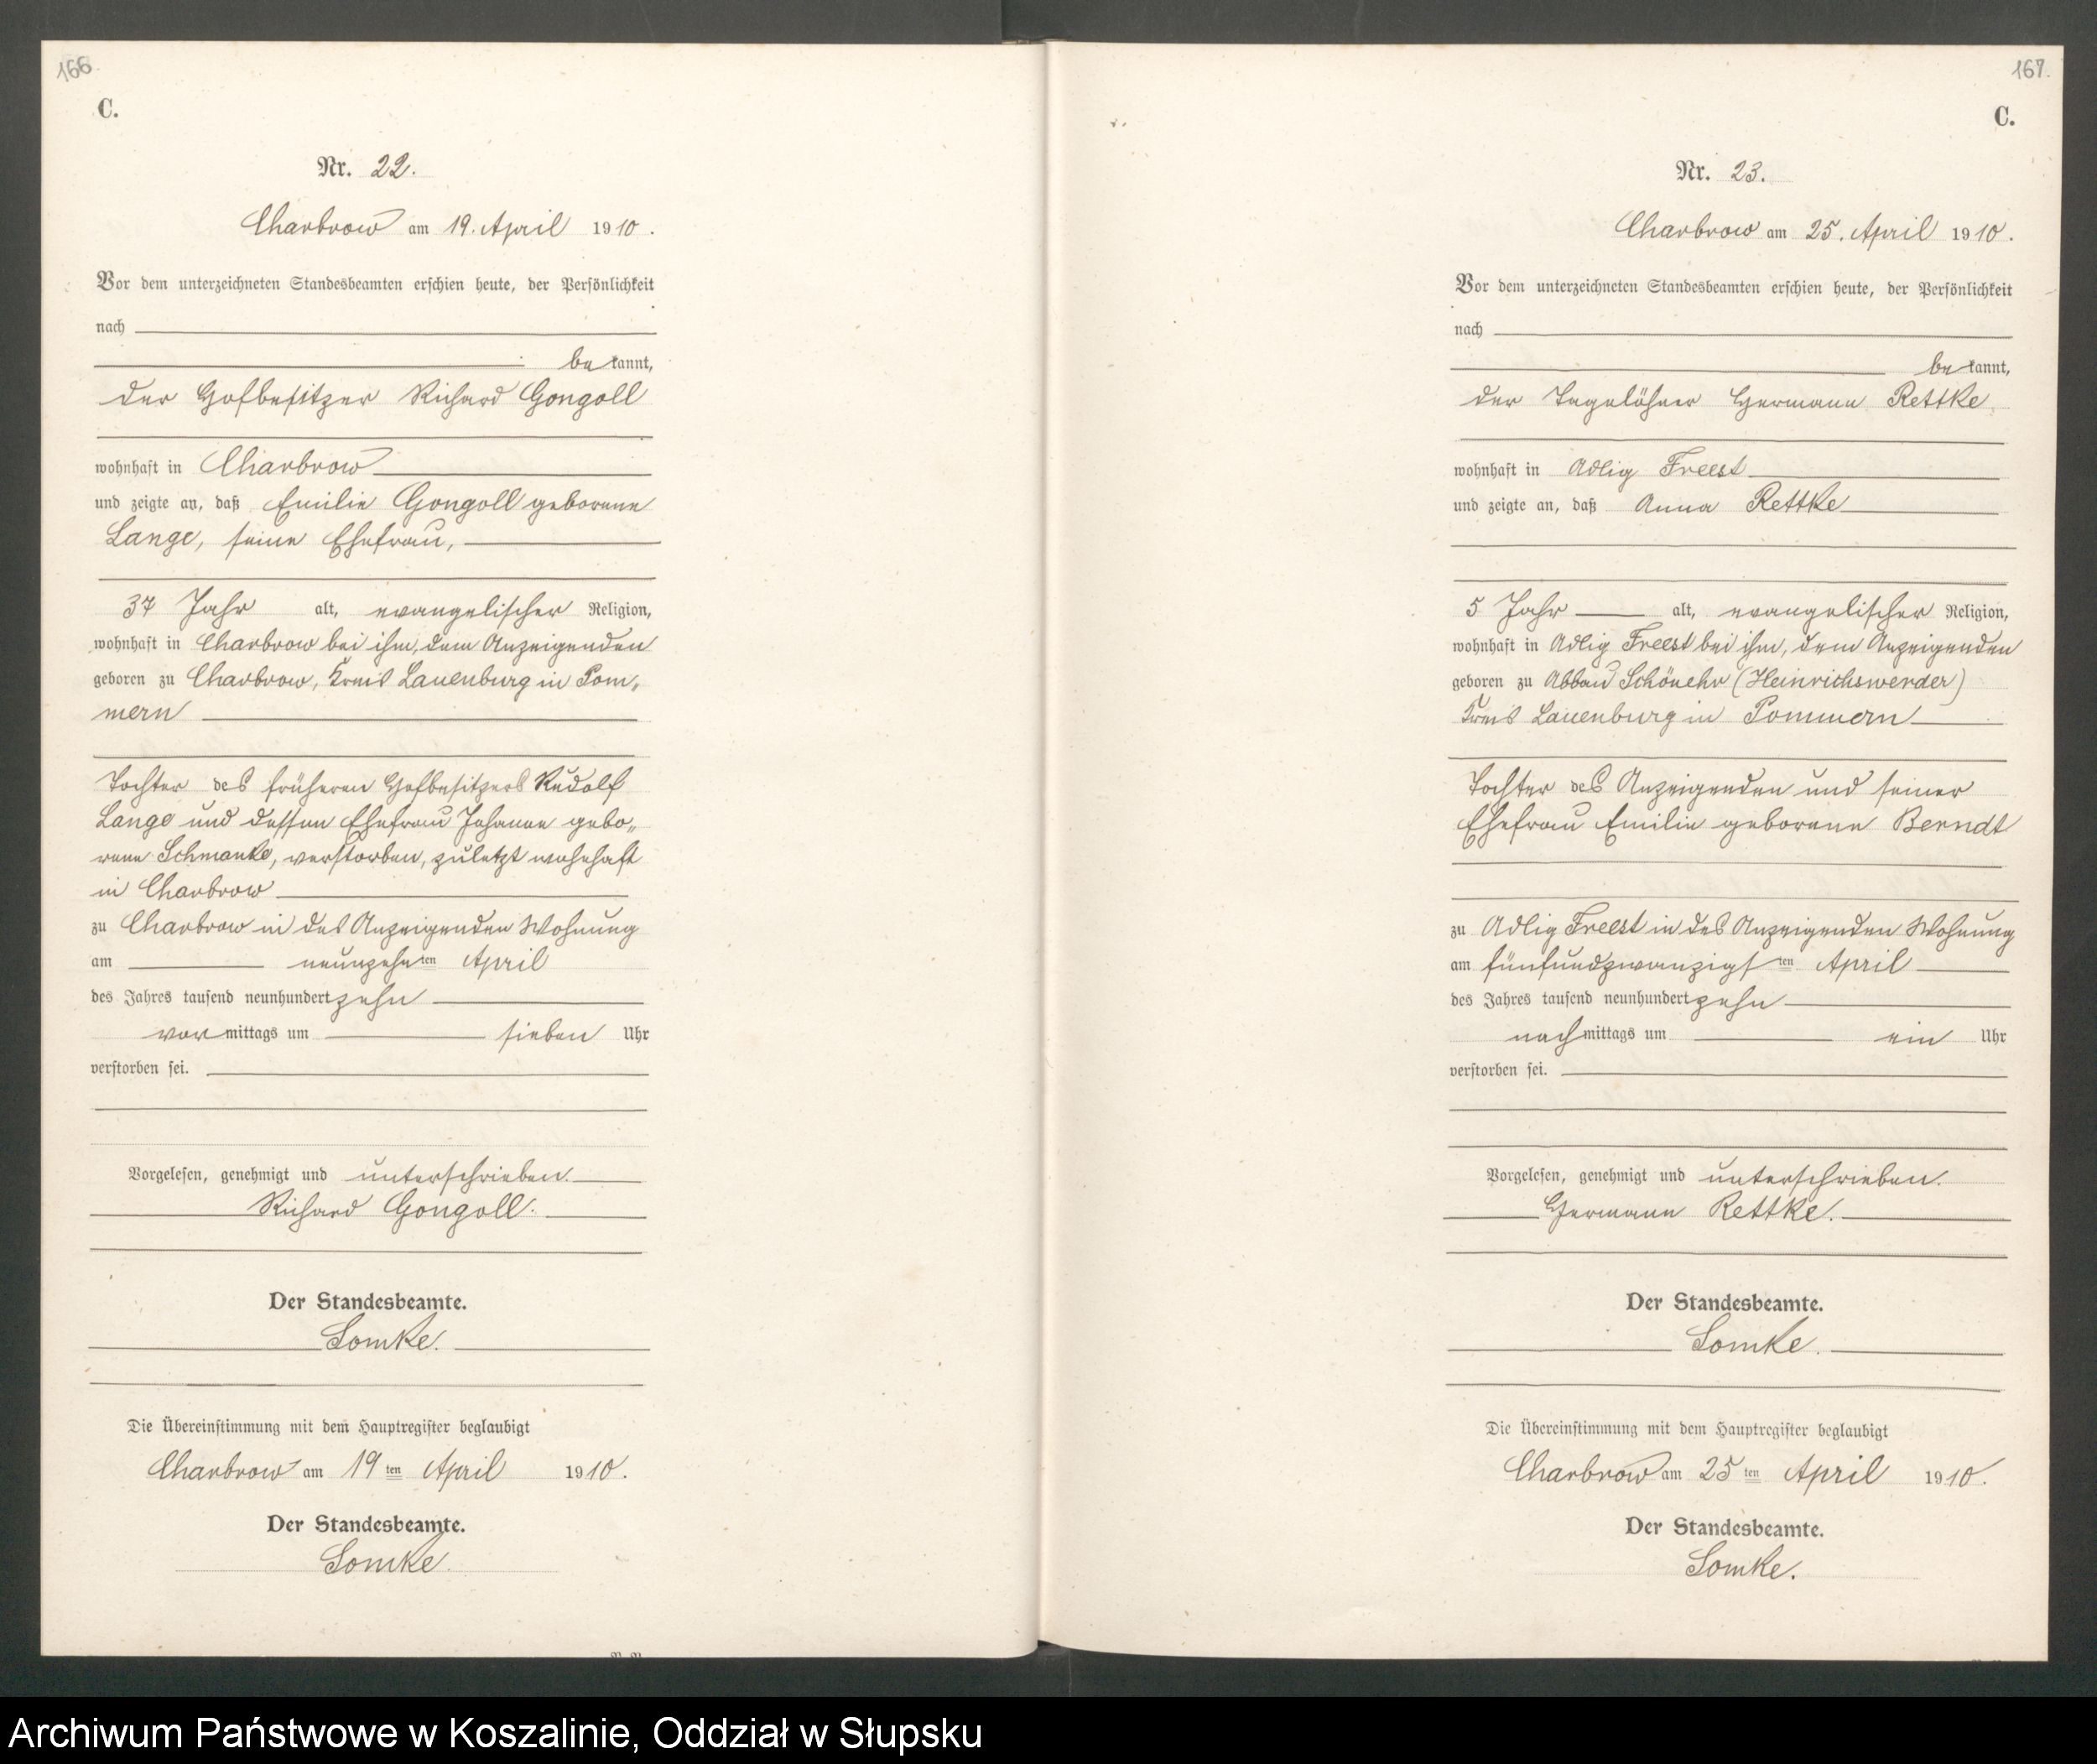 166.
C.
Nr. 22.
Charbrow am 19. April 1910.
Vor dem unterzeichneten Standesbeamten erschien heute, der Persönlichkeit
nach
bekannt,
der Hofbesitzer Richard Gongoll
wohnhaft in Charbrow
und zeigte an, daß Emilie Gongoll geborene
Lange, seine Ehefrau,
37 Jahr alt, evangelischer Religion,
wohnhaft in Charbrow bei ihm, dem Anzeigenden
geboren zu Charbrow, Kreis Lauenburg in Pom„
mern
Tochter des früheren Hofbesitzers Rudolf
Lange und dessen Ehefrau Johanne gebo„
rene Schmanke, verstorben, zuletzt wohnhaft
in Charbrow
zu Charbrow in des Anzeigenden Wohnung
am neunzehnten April
des Jahres tausend neunhundert zehn
vormittags um sieben Uhr
verstorben sei.
Vorgelesen, genehmigt und unterschrieben.
Richard Gongoll.
Der Standesbeamte.
Lomke.
Die Übereinstimmung mit dem Hauptregister beglaubigt
Charbrow am 19ten April 1910.
Der Standesbeamte.
Lomke.
167.
C.
Nr. 23.
Charbrow am 25. April 1910.
Vor dem unterzeichneten Standesbeamten erschien heute, der Persönlichkeit
nach
bekannt,
der Tagelöhner Hermann Rettke
wohnhaft in Adlig Freest
und zeigte an, daß Anna Rettke
5 Jahr alt, evangelischer Religion,
wohnhaft in Adlig Freest bei ihm, dem Anzeigenden
geboren zu Abbau Schönehr (Heinrichswerder)
Kreis Lauenburg in Pommern
Tochter des Anzeigenden und seiner
Ehefrau Emilie geborene Berndt
zu Adlig Freest in des Anzeigenden Wohnung
am fünfundzwanzigsten April
des Jahres tausend neunhundert zehn
nachmittags um ein Uhr
verstorben sei.
Vorgelesen, genehmigt und unterschrieben.
Hermann Rettke.
Der Standesbeamte.
Lomke.
Die Übereinstimmung mit dem Hauptregister beglaubigt
Charbrow am 25ten April 1910.
Der Standesbeamte.
Lomke.
Archiwum Państwowe w Koszalinie, Oddział w Słupsku